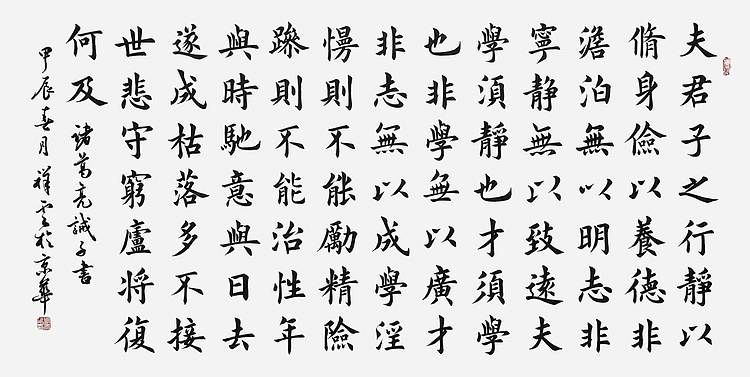 夫君子之行靜以
脩身儉以養德非
澹泊無以明志非
寧静無以致遠夫
學須靜也才須學
也非學無以廣才
非志無以成學淫
慢則不能勵精險
躁則不能治性年
與時馳意與日去
遂成枯落多不接
世悲守窮廬將復
何及 諸葛亮誡子書
甲辰春月祥雲於京華